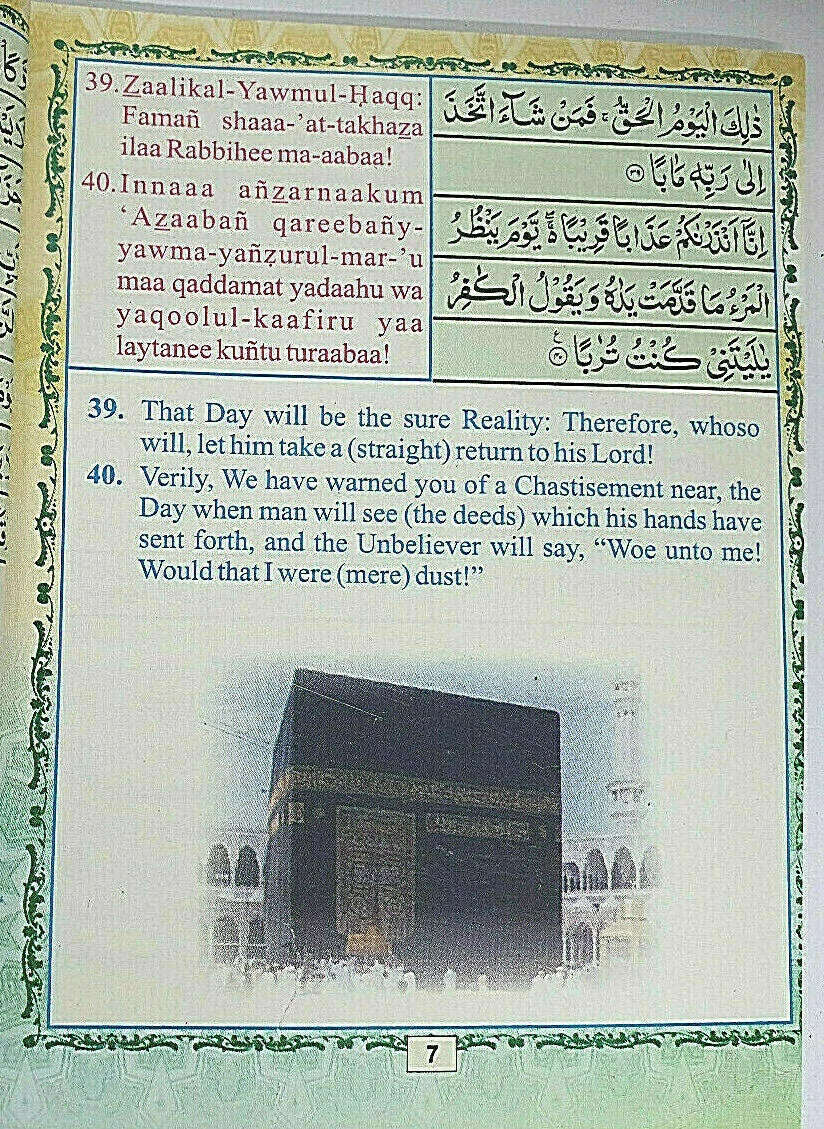 39. Zaalikal-Yawmul-Ḥaqq:
Famañ shaaa-’at-takhaza
ilaa Rabbihee ma-aabaa!
40. Innaaa añzarnaakum
‘Azaabañ qareebañy-
yawma-yañẓurul-mar-’u
maa qaddamat yadaahu wa
yaqoolul-kaafiru yaa
laytanee kuñtu turaabaa!
ذٰلِكَ الْيَوْمُ الْحَقُّ ۚ فَمَنْ شَآءَ اتَّخَذَ
اِلٰى رَبِّهٖ مَاٰبًا ۝۳۹
اِنَّاۤ اَنْذَرْنٰكُمْ عَذَابًا قَرِيْبًا ۬ۚۖ يَّوْمَ يَنْظُرُ
الْمَرْءُ مَا قَدَّمَتْ يَدٰهُ وَيَقُوْلُ الْكٰفِرُ
يٰلَيْتَنِيْ كُنْتُ تُرٰبًا ۝۴۰ ع
39. That Day will be the sure Reality: Therefore, whoso
will, let him take a (straight) return to his Lord!
40. Verily, We have warned you of a Chastisement near, the
Day when man will see (the deeds) which his hands have
sent forth, and the Unbeliever will say, “Woe unto me!
Would that I were (mere) dust!”
7